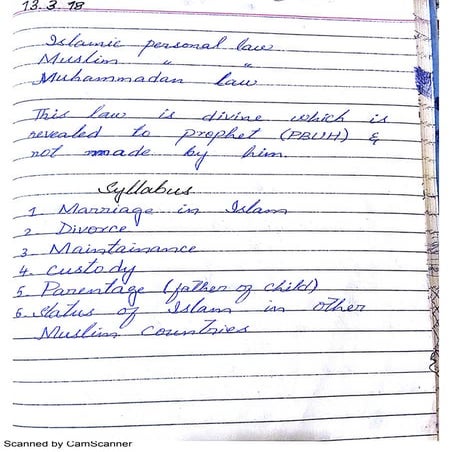 13.3.18
Islamic personal law
Muslim " "
Muhammadan law
This law is divine which is
revealed to prophet (PBUH) &
not made by him.
Syllabus
1 Marriage in Islam
2 Divorce
3 Maintainance
4. Custody
5 Parentage (father of child)
6. Status of Islam in other
Muslim countries
Scanned by CamScanner